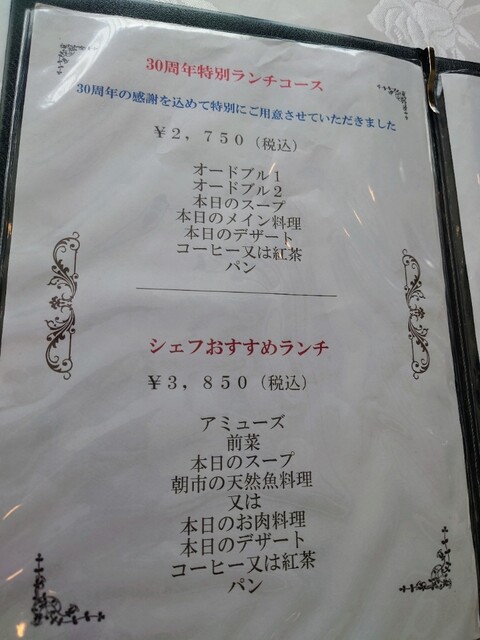 30周年特別ランチコース
30周年の感謝を込めて特別にご用意させていただきました
￥2，750（税込）
オードブル1
オードブル2
本日のスープ
本日のメイン料理
本日のデザート
コーヒー又は紅茶
パン
シェフおすすめランチ
￥3，850（税込）
アミューズ
前菜
本日のスープ
朝市の天然魚料理
又は
本日のお肉料理
本日のデザート
コーヒー又は紅茶
パン